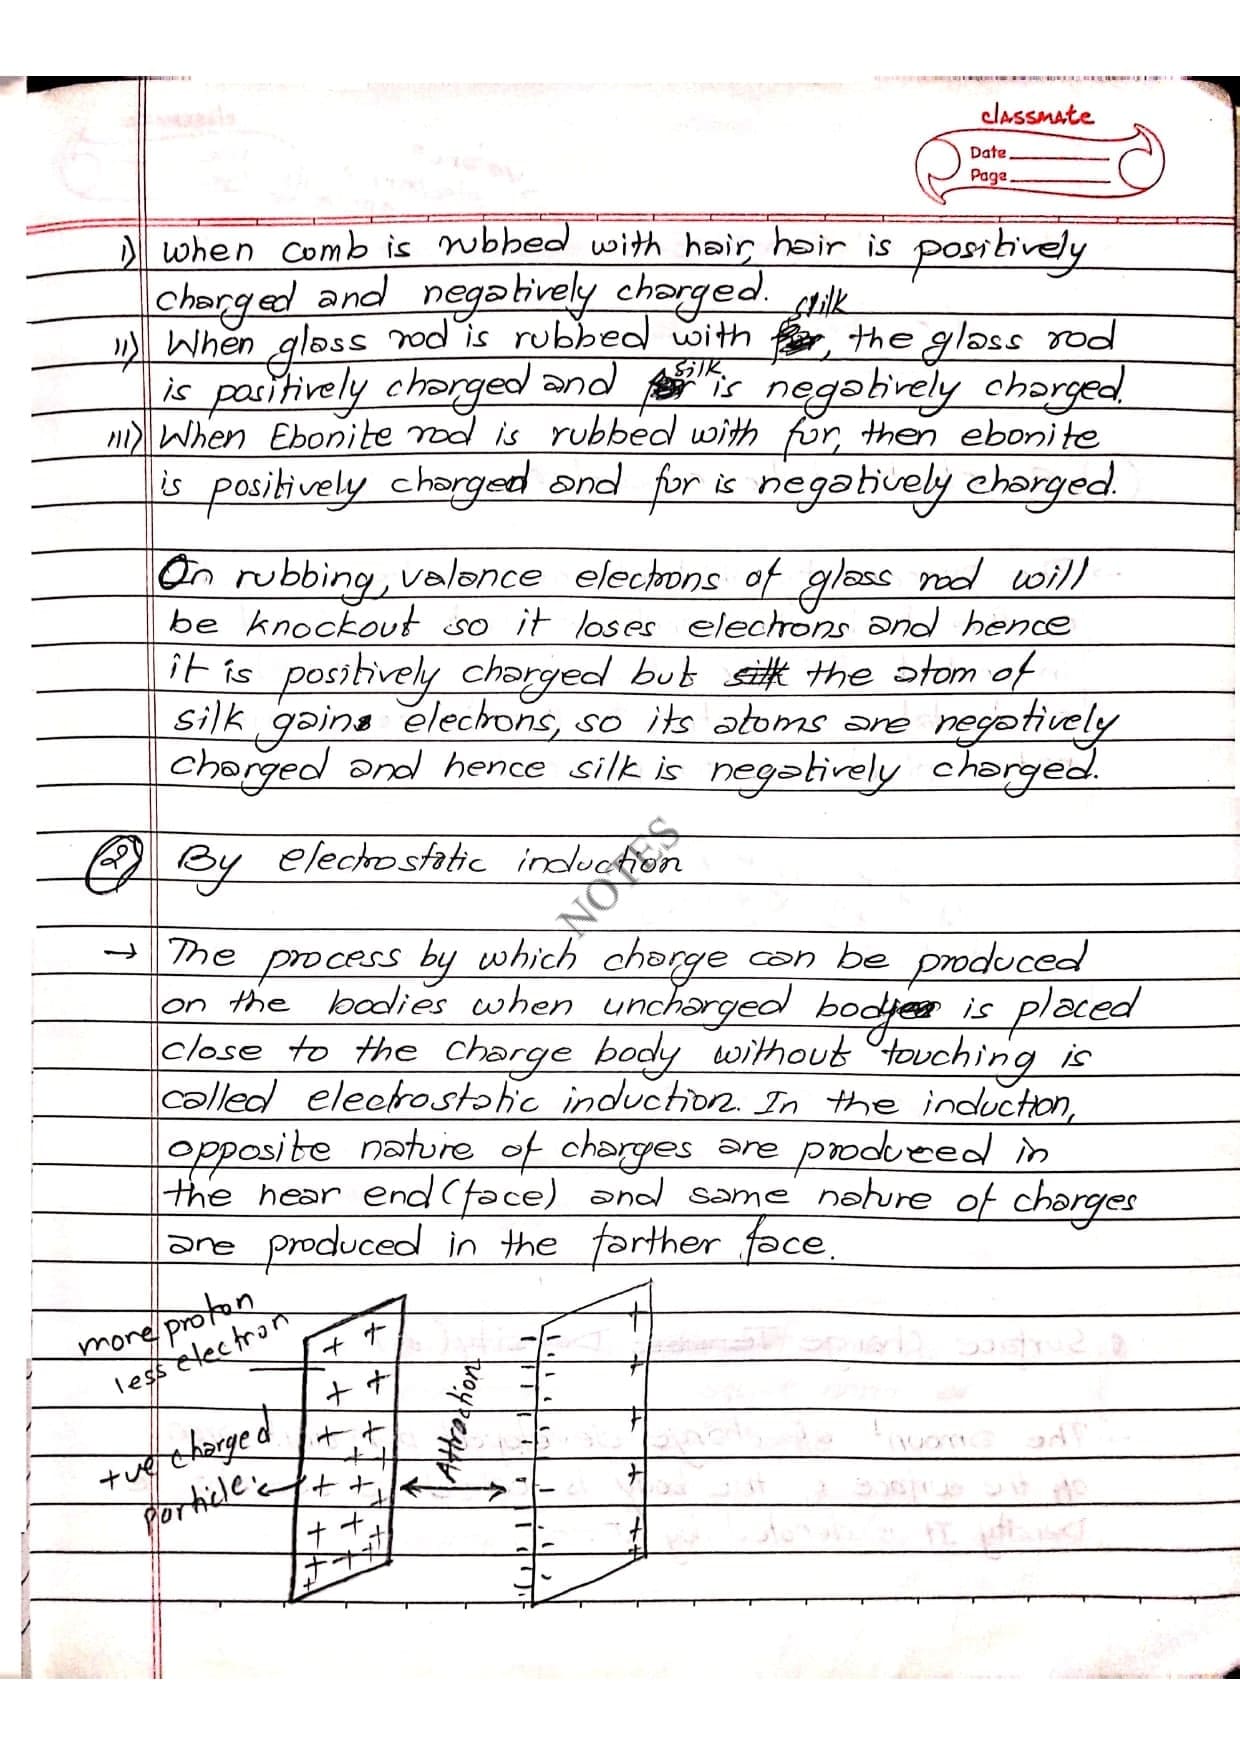 classmate
Date
Page
i) when comb is rubbed with hair, hair is positively
charged and negatively charged.
silk
ii) When glass rod is rubbed with, the glass rod
silk
is positively charged and is negatively charged.
iii) When Ebonite rod is rubbed with fur, then ebonite
is positively charged and fur is negatively charged.
On rubbing, valance electrons of glass rod will
be knockout so it loses electrons and hence
it is positively charged but silk the atom of
silk gains electrons, so its atoms are negatively
charged and hence silk is negatively charged.
2) By electrostatic induction
NOTES
→ The process by which charge can be produced
on the bodies when uncharged body is placed
close to the charge body without touching is
called electrostatic induction. In the induction,
opposite nature of charges are produced in
the near end (face) and same nature of charges
are produced in the farther face.
more proton
less electron
+ve charged
particle
Attraction